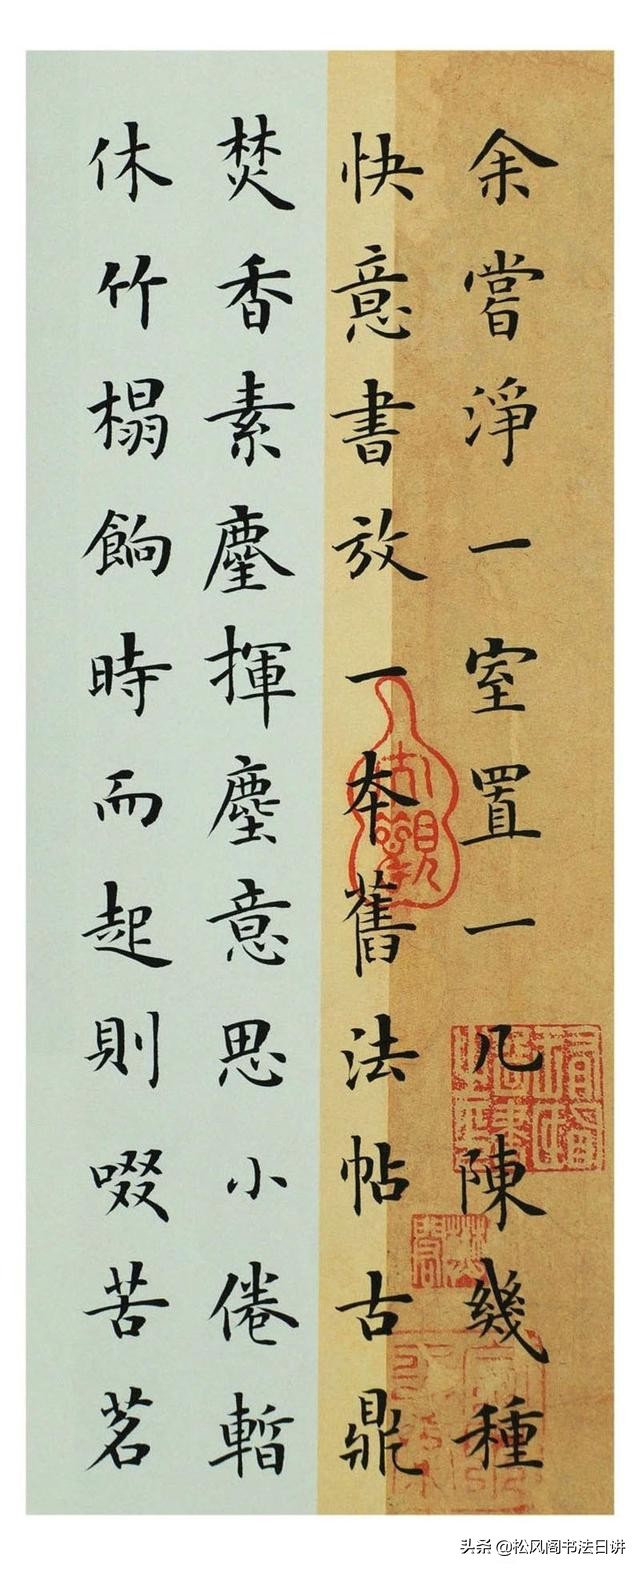 余嘗淨一室置一几陳幾種
快意書放一本舊法帖古鼎
焚香素麈揮塵意思小倦暫
休竹榻餉時而起則啜苦茗
头条 @松风阁书法日讲